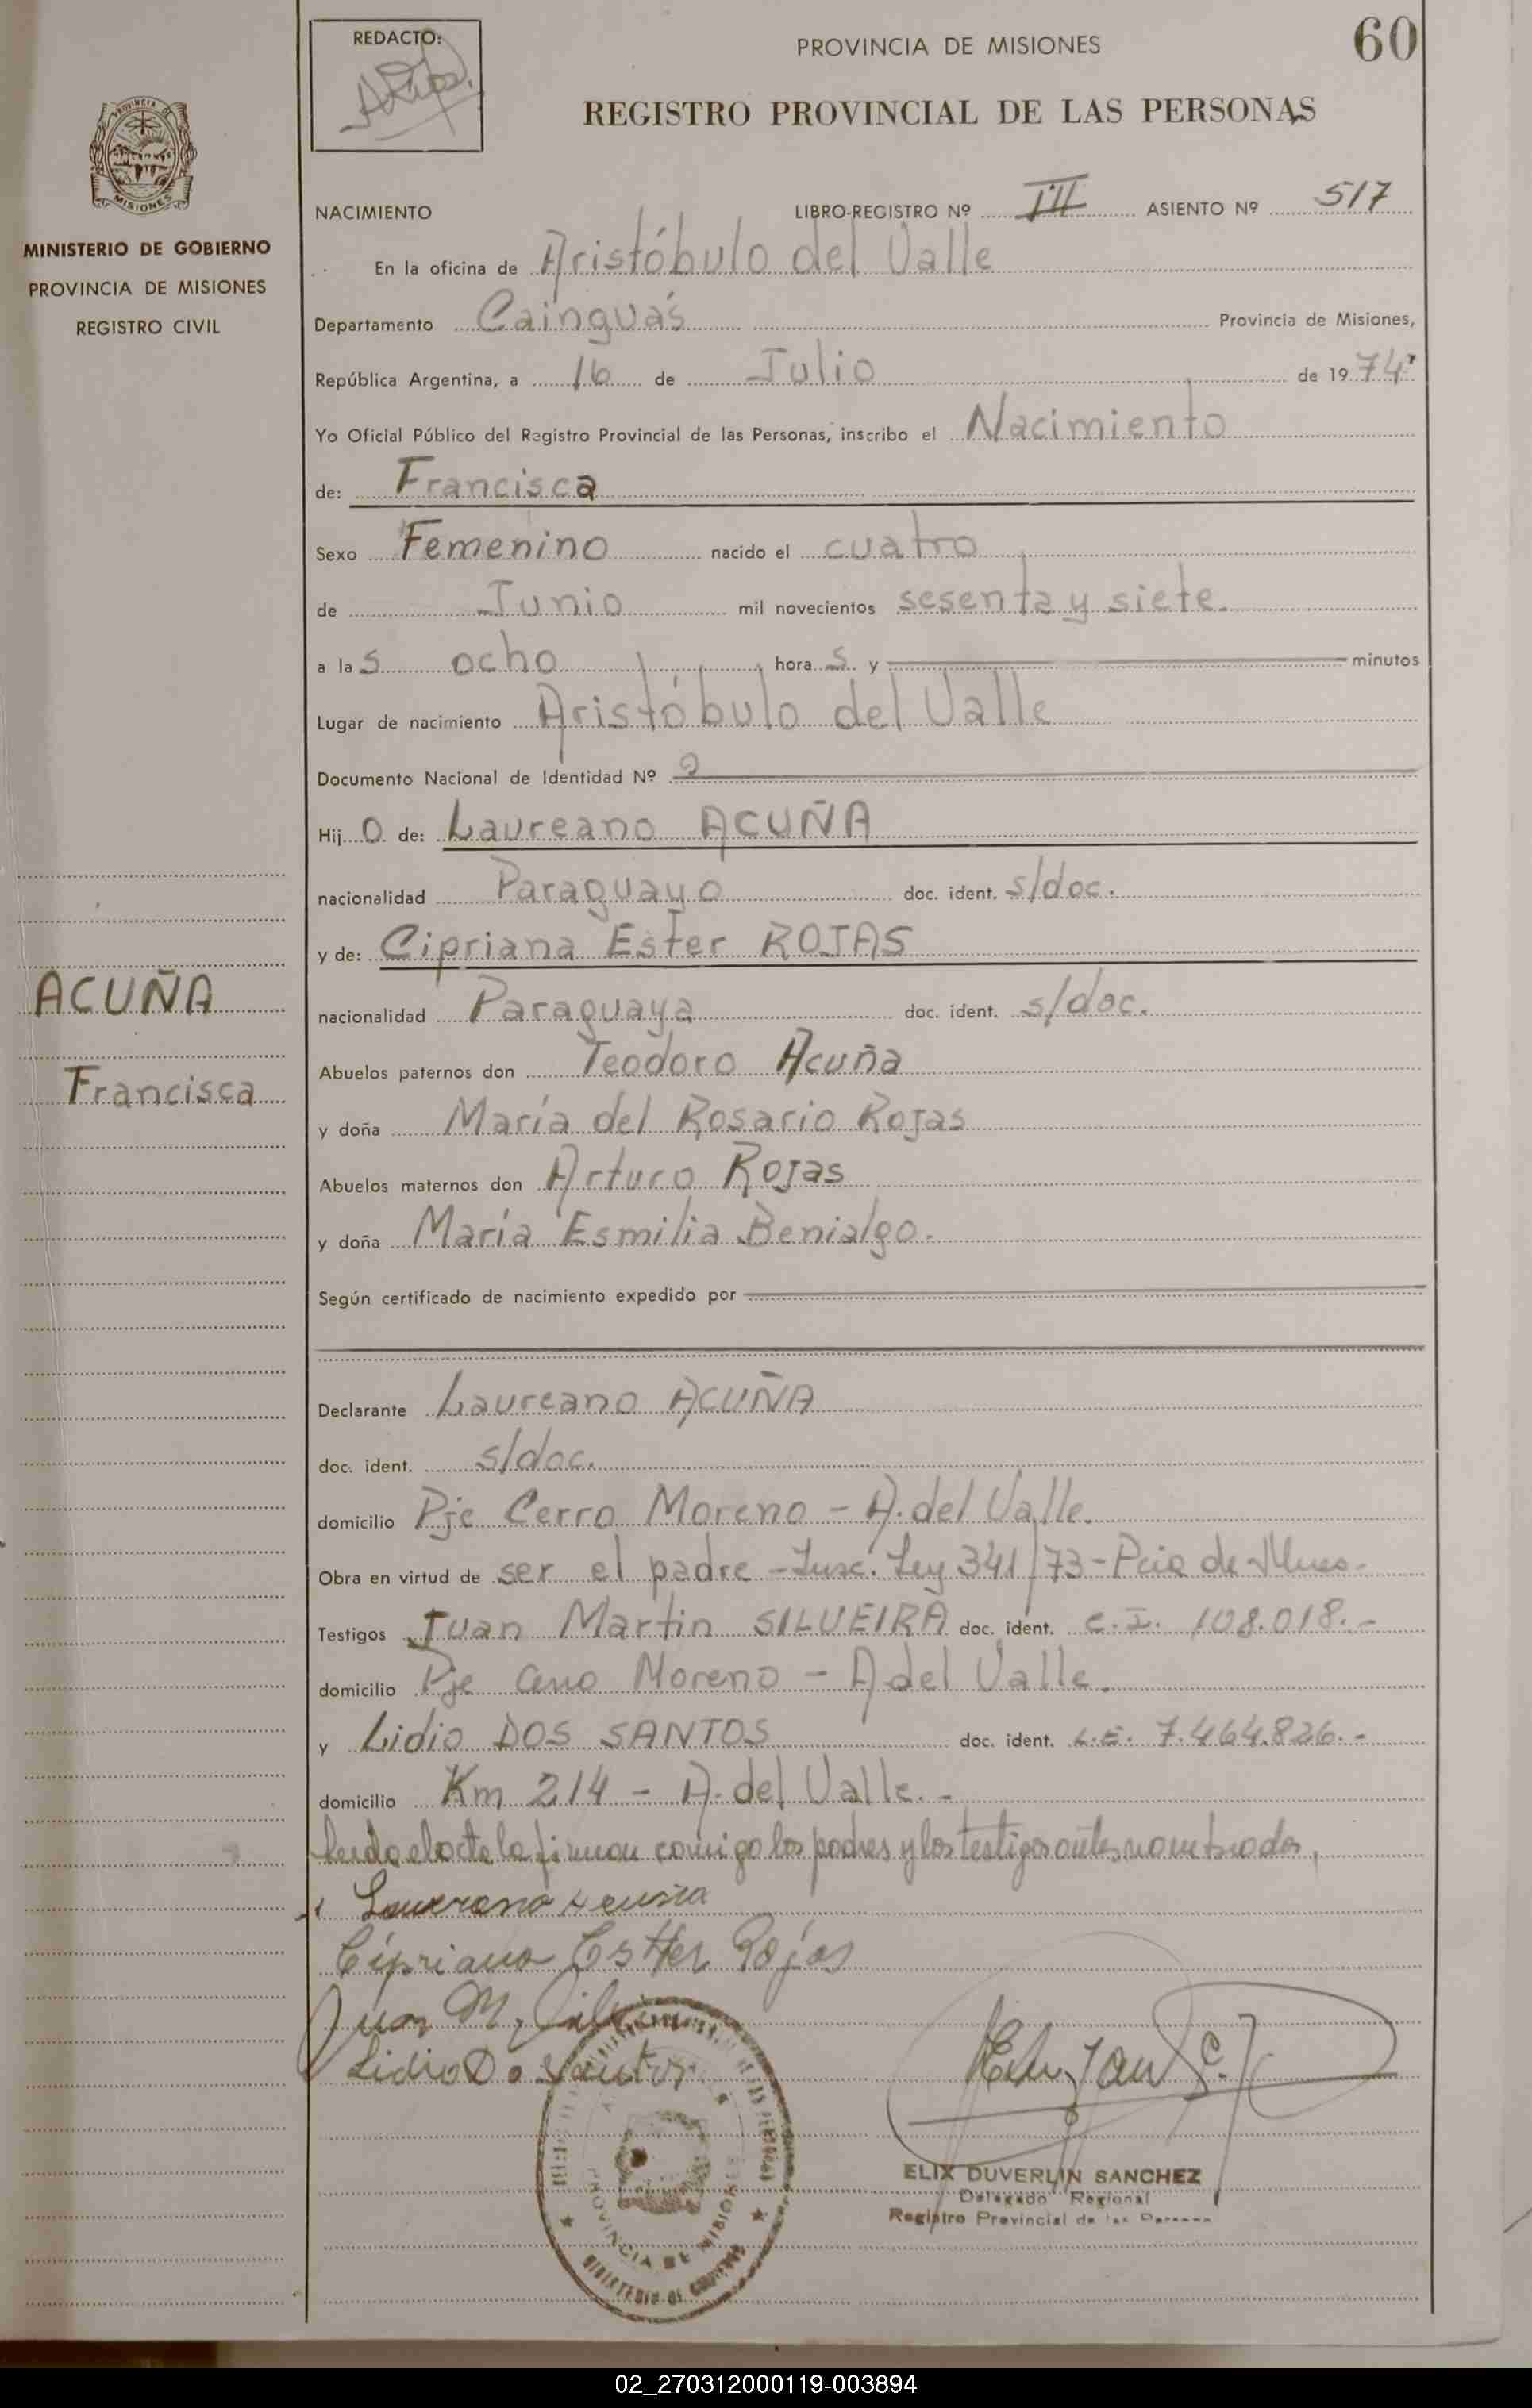 REDACTO:
PROVINCIA DE MISIONES
60
REGISTRO PROVINCIAL DE LAS PERSONAS
PROVINCIA DE
MISIONES
MINISTERIO DE GOBIERNO
PROVINCIA DE MISIONES
REGISTRO CIVIL
NACIMIENTO LIBRO-REGISTRO Nº III ASIENTO Nº 517
En la oficina de Aristóbulo del Valle
Departamento Cainguás Provincia de Misiones,
República Argentina, a 16 de Julio de 1974
Yo Oficial Público del Registro Provincial de las Personas, inscribo el Nacimiento
de: Francisca
Sexo Femenino nacido el cuatro
de Junio mil novecientos sesenta y siete.
a las ocho horas y minutos
Lugar de nacimiento Aristóbulo del Valle
Documento Nacional de Identidad Nº
Hijo de: Laureano ACUÑA
nacionalidad Paraguayo doc. ident. s/doc.
y de: Cipriana Ester ROJAS
nacionalidad Paraguaya doc. ident. s/doc.
Abuelos paternos don Teodoro Acuña
y doña María del Rosario Rojas
Abuelos maternos don Arturo Rojas
y doña María Esmilia Benialgo.
Según certificado de nacimiento expedido por
ACUÑA
Francisca
Declarante Laureano ACUÑA
doc. ident. s/doc.
domicilio Pje Cerro Moreno - A. del Valle.
Obra en virtud de ser el padre - Insc. Ley 341/73 - Pcia de Mnes.
Testigos Juan Martin SILVEIRA doc. ident. C.I. 108.018.-
domicilio Pje Cerro Moreno - A del Valle.
y Lidio DOS SANTOS doc. ident. L.E. 7.464.826.-
domicilio Km 214 - A. del Valle.-
Leida el acta la firman conmigo los padres y los testigos antes nombrados,
Laureano Acuña
Cipriana Esther Rojas
Juan M. Silveira
Lidio Do Santos
PROVINCIA DE MISIONES
MINISTERIO DE GOBIERNO
ELIX DUVERLIN SANCHEZ
Delegado Regional
Registro Provincial de las
02_270312000119-003894